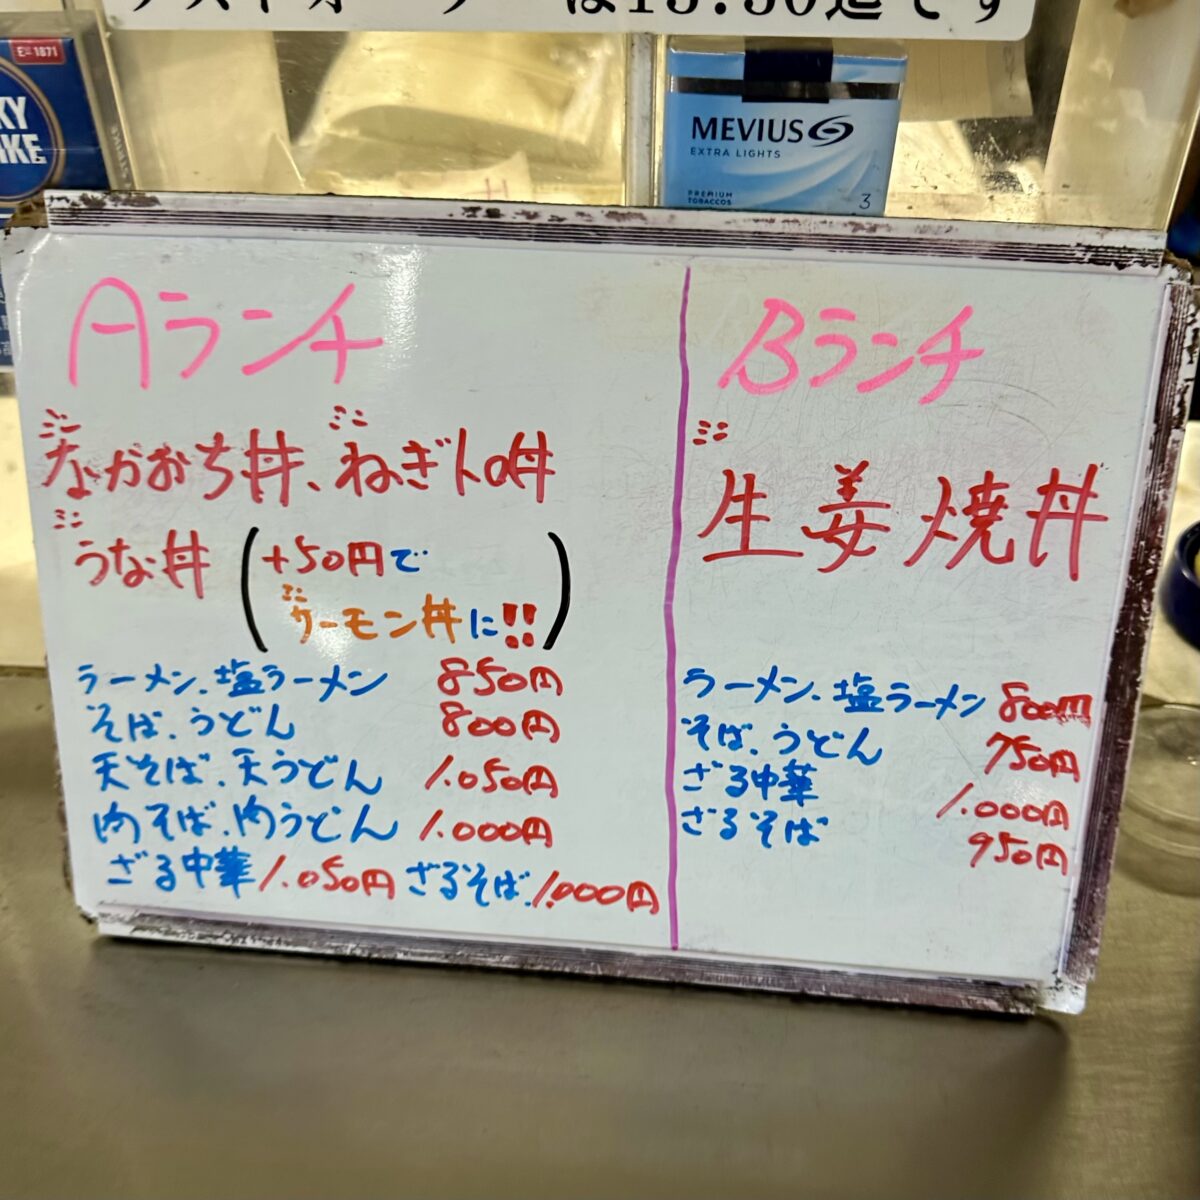 ラストオーダーは13:30迄です
E=1871
KY
IKE
MEVIUS
EXTRA LIGHTS
PREMIUM
TOBACCOS
3
Aランチ
ミニなかおち丼、ミニねぎトロ丼
ミニうな丼(+50円で
ミニサーモン丼に!!)
ラーメン、塩ラーメン 850円
そば、うどん 800円
天そば、天うどん 1.050円
肉そば、肉うどん 1.000円
ざる中華 1.050円 ざるそば 1.000円
Bランチ
ミニ
生姜焼丼
ラーメン、塩ラーメン 800円
そば、うどん 750円
ざる中華 1.000円
ざるそば 950円